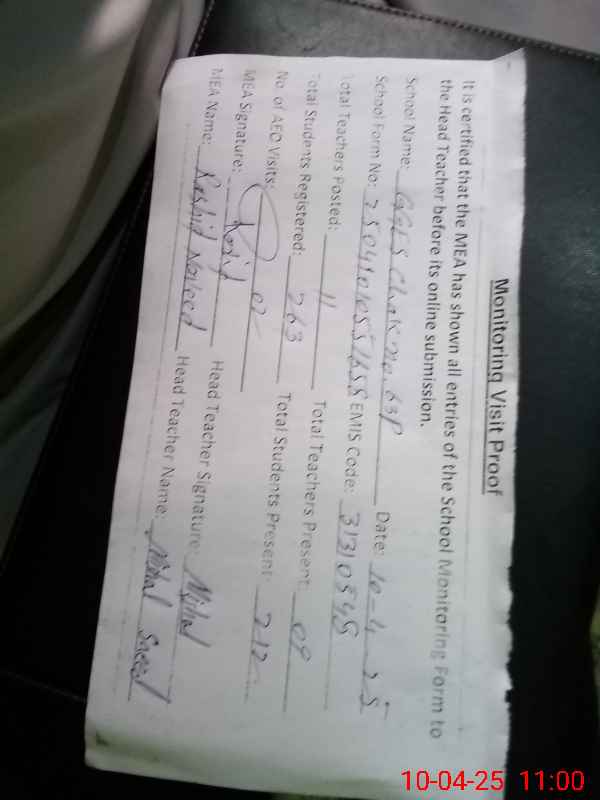 Monitoring Visit Proof
It is certified that the MEA has shown all entries of the School Monitoring Form to
the Head Teacher before its online submission.
School Name: GGES Chak no. 63P Date: 10-4-25
School Form No: EMIS Code: 31310545
Total Teachers Posted: 11 Total Teachers Present: 09
Total Students Registered: 263 Total Students Present: 212
No. of AEO Visits: 02
MEA Signature: Rashid Head Teacher Signature: Mihal
MEA Name: Rashid Naveed Head Teacher Name: Mihal Saeed
10-04-25 11:00